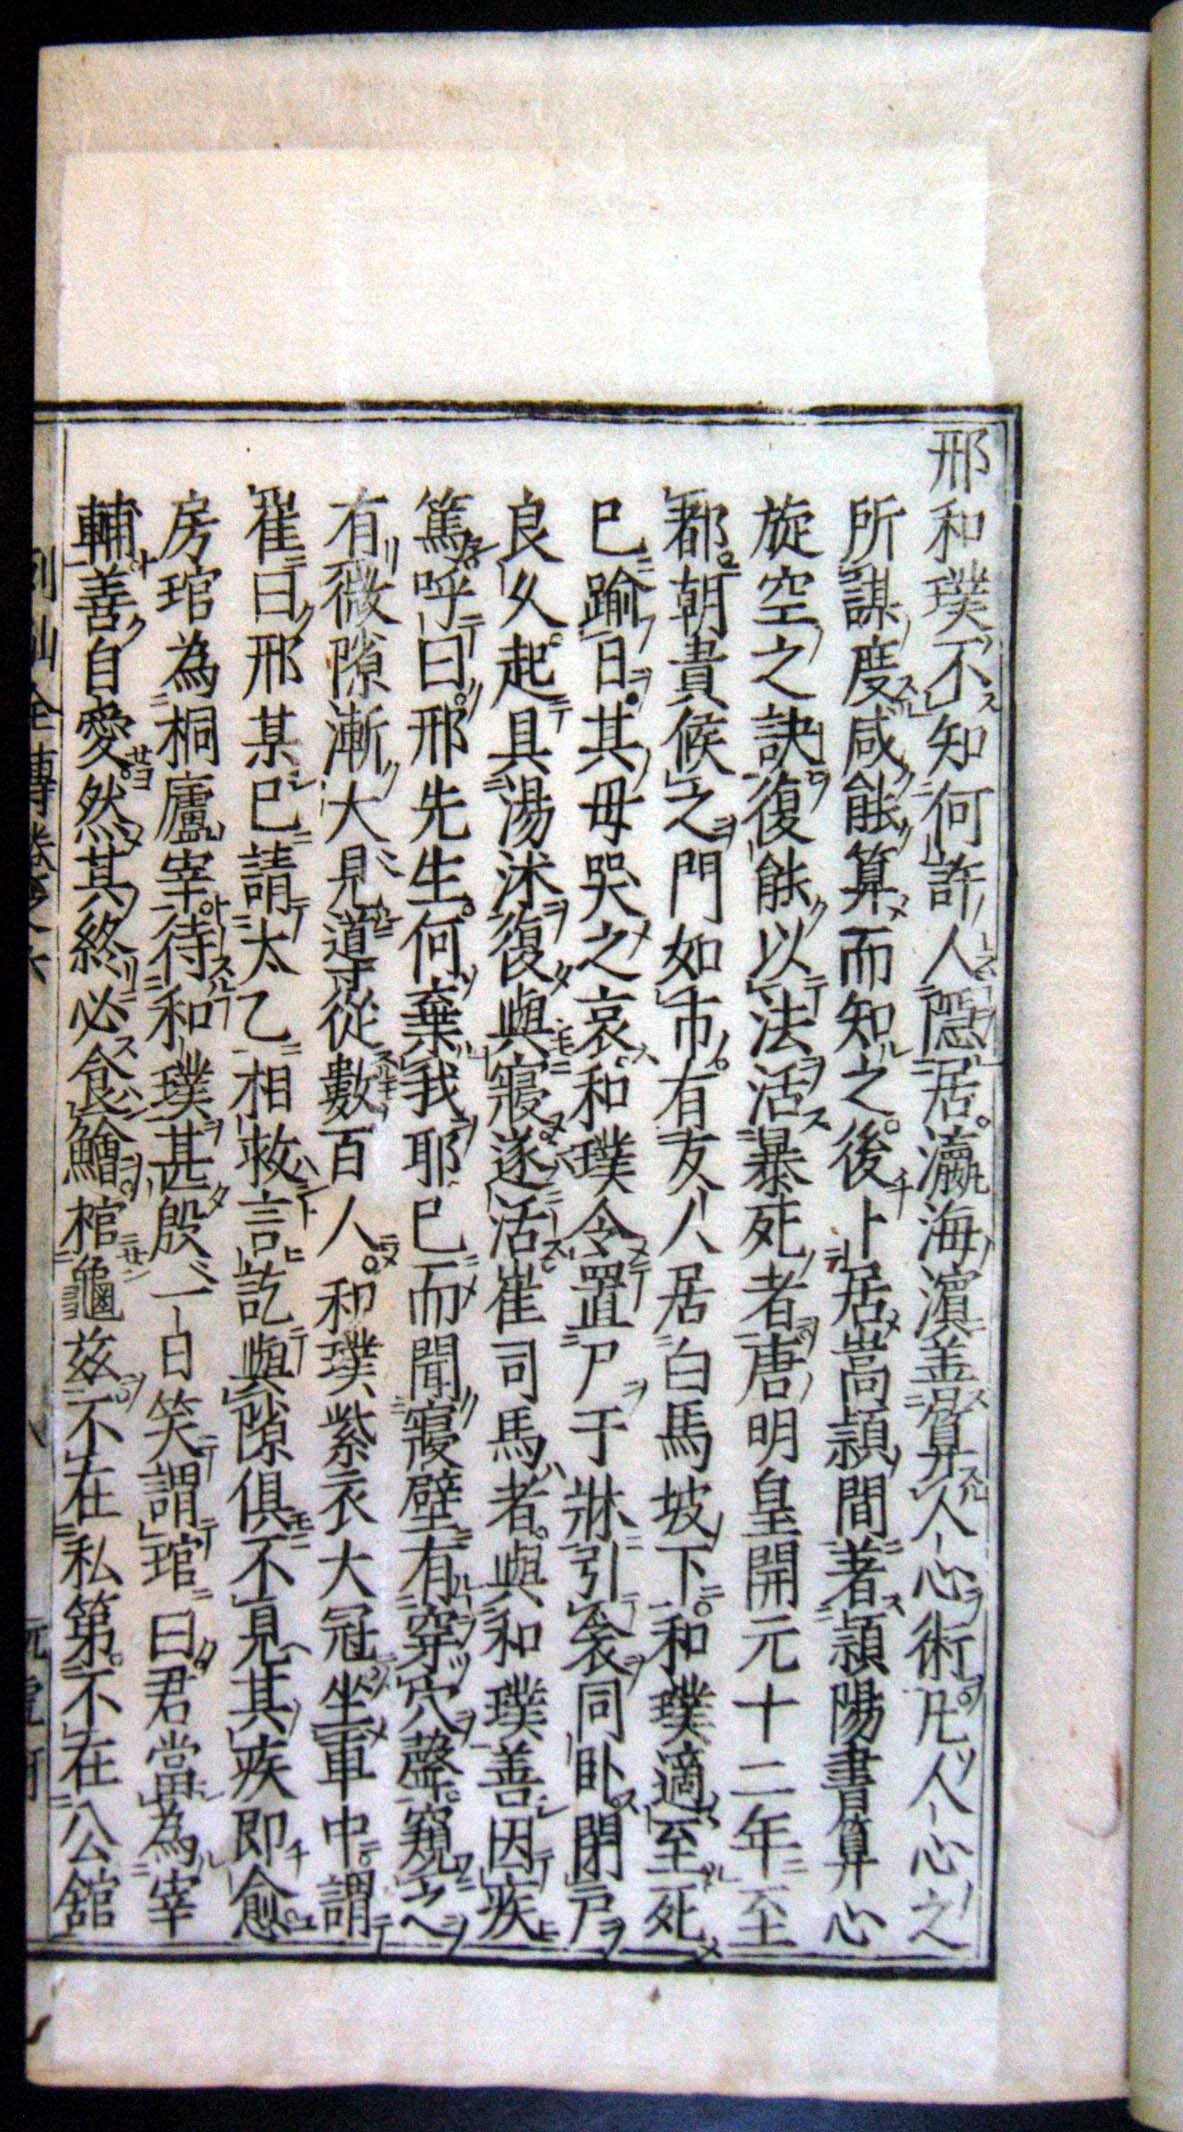 邢和璞不知何許人隱居瀛海濵善算人心術凡人心之
所謀度咸能算而知之後卜居嵩頴間著頴陽書算心
旋空之訣復能以法活暴死者唐明皇開元十二年至
都朝貴候之門如市有友人居白馬坡下和璞適至死
已踰日其母哭之哀和璞令置尸于牀引衾同卧閉戸
良乆起具湯沐復與寢遂活崔司馬者與和璞善因疾
篤呼曰邢先生何棄我耶已而聞寢壁有穿穴聲窺之
有微隙漸大見導從數百人和璞紫衣大冠坐車中謂
崔曰邢某已請太乙相救言訖與隙俱不見其疾即愈
房琯為桐廬宰待和璞甚殷一日笑謂琯曰君當為宰
輔善自愛然其終必食鱠棺龜兹不在私第不在公舘
列仙全傳卷之六 八 玩虎軒